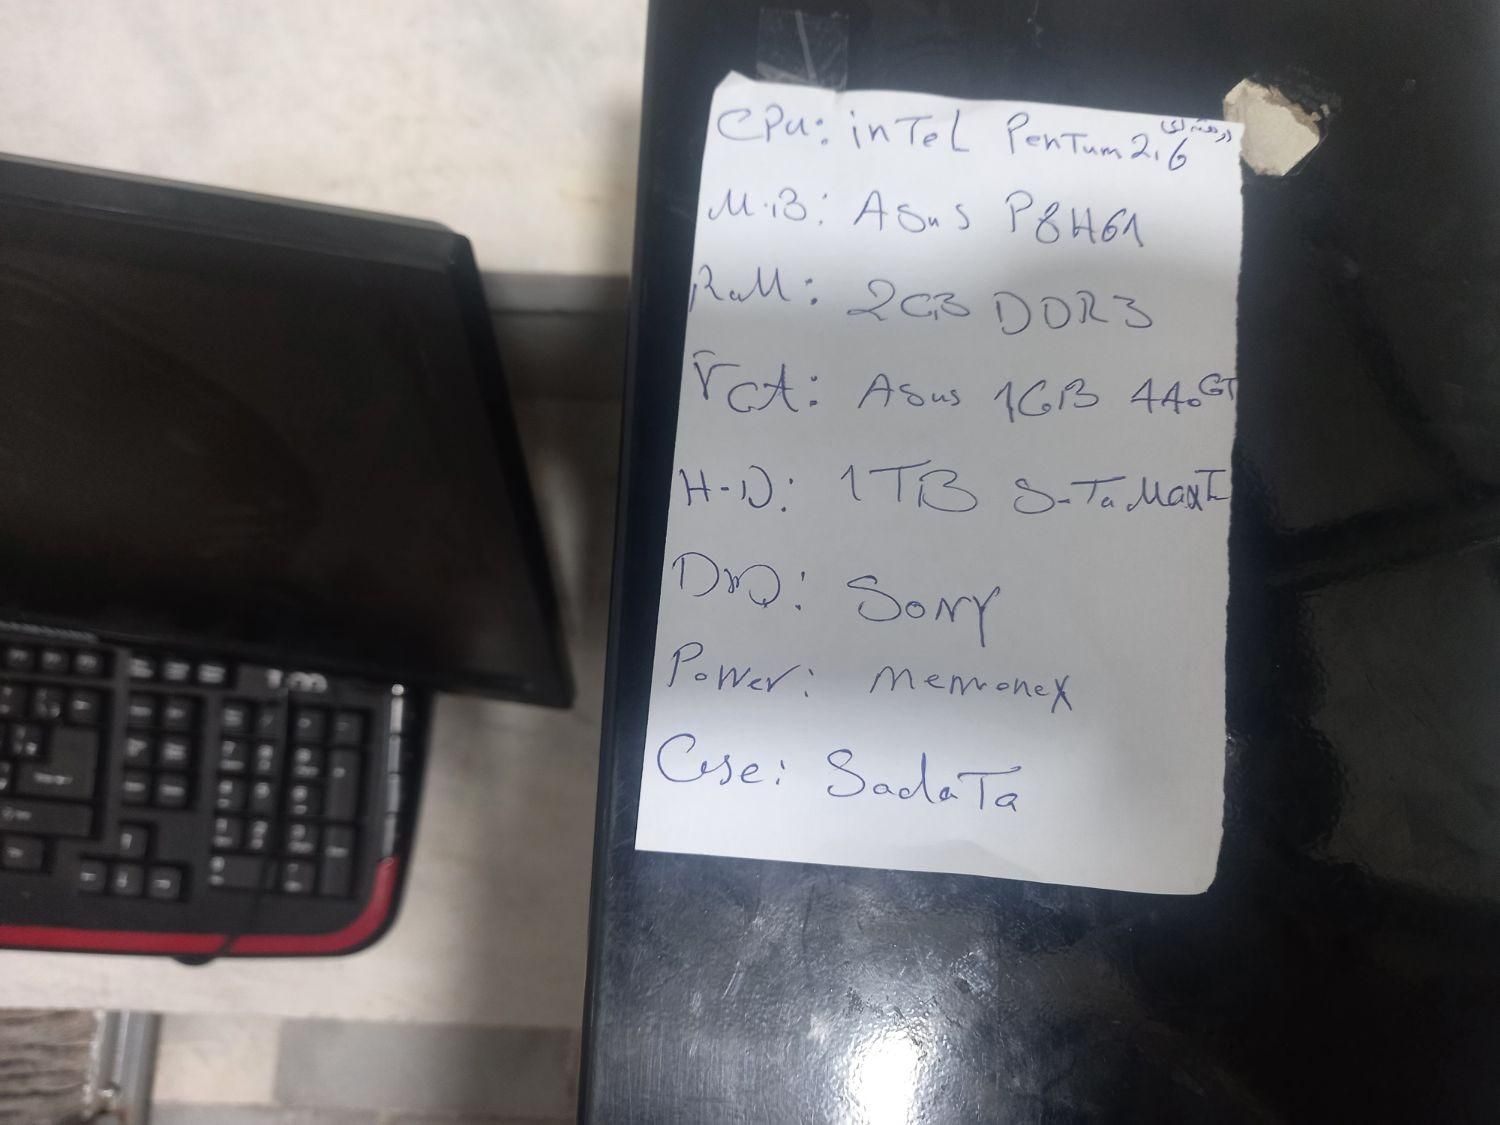 CPu: inTeL PenTum 2.6 دو هسته ای
M.B: Asus P8H61
RaM: 2GB DDR3
VGA: Asus 1GB 440GT
H-D: 1TB S-Ta MaxT
DVD: Sony
Power: memonex
Case: SadaTa